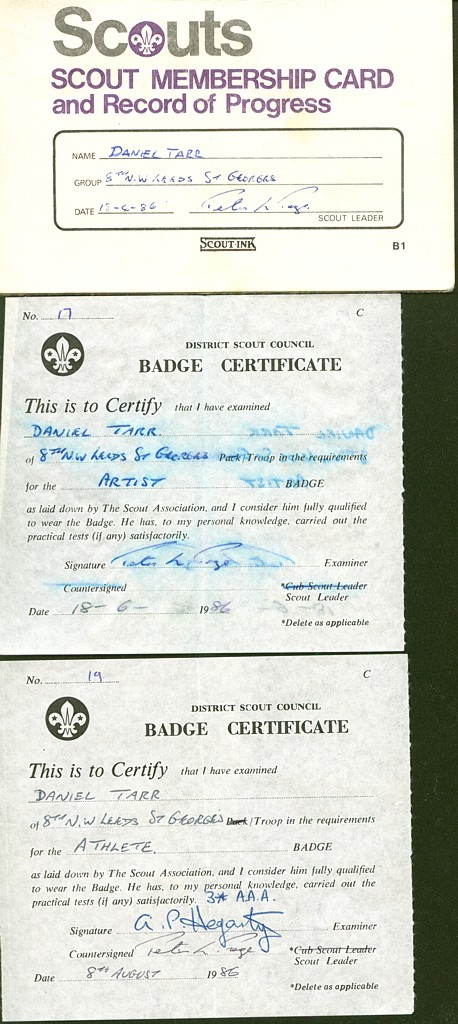 Scouts
SCOUT MEMBERSHIP CARD
and Record of Progress
NAME DANIEL TARR
GROUP 8TH N.W LEEDS ST GEORGES
DATE 18-6-86
SCOUT LEADER
SCOUT-INK
B1
No. 17 C
DISTRICT SCOUT COUNCIL
BADGE CERTIFICATE
This is to Certify that I have examined
DANIEL TARR.
of 8TH N.W LEEDS ST GEORGES Pack/Troop in the requirements
for the ARTIST BADGE
as laid down by The Scout Association, and I consider him fully qualified
to wear the Badge. He has, to my personal knowledge, carried out the
practical tests (if any) satisfactorily.
Signature Examiner
Countersigned *Cub Scout Leader
Scout Leader
Date 18-6- 1986
*Delete as applicable
No. 19 C
DISTRICT SCOUT COUNCIL
BADGE CERTIFICATE
This is to Certify that I have examined
DANIEL TARR
of 8TH N.W LEEDS ST GEORGES Pack/Troop in the requirements
for the ATHLETE. BADGE
as laid down by The Scout Association, and I consider him fully qualified
to wear the Badge. He has, to my personal knowledge, carried out the
practical tests (if any) satisfactorily. 3* A.A.A.
Signature A. P. Hegarty Examiner
Countersigned *Cub Scout Leader
Scout Leader
Date 8TH AUGUST 1986
*Delete as applicable